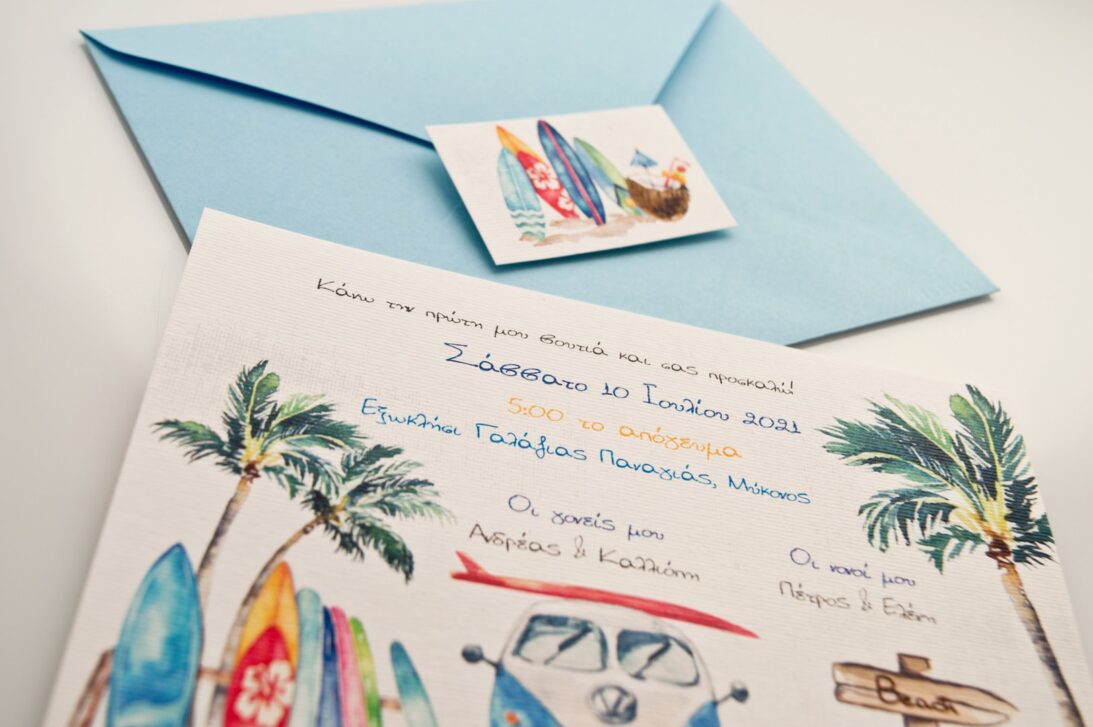 Κάνω την πρώτη μου βουτιά και σας προσκαλώ!
Σάββατο 10 Ιουλίου 2021
5:00 το απόγευμα
Εξωκλήσι Γαλάζιας Παναγιάς, Μύκονος
Οι γονείς μου
Ανδρέας & Καλλιόπη
Οι νονοί μου
Πέτρος & Ελένη
Beach